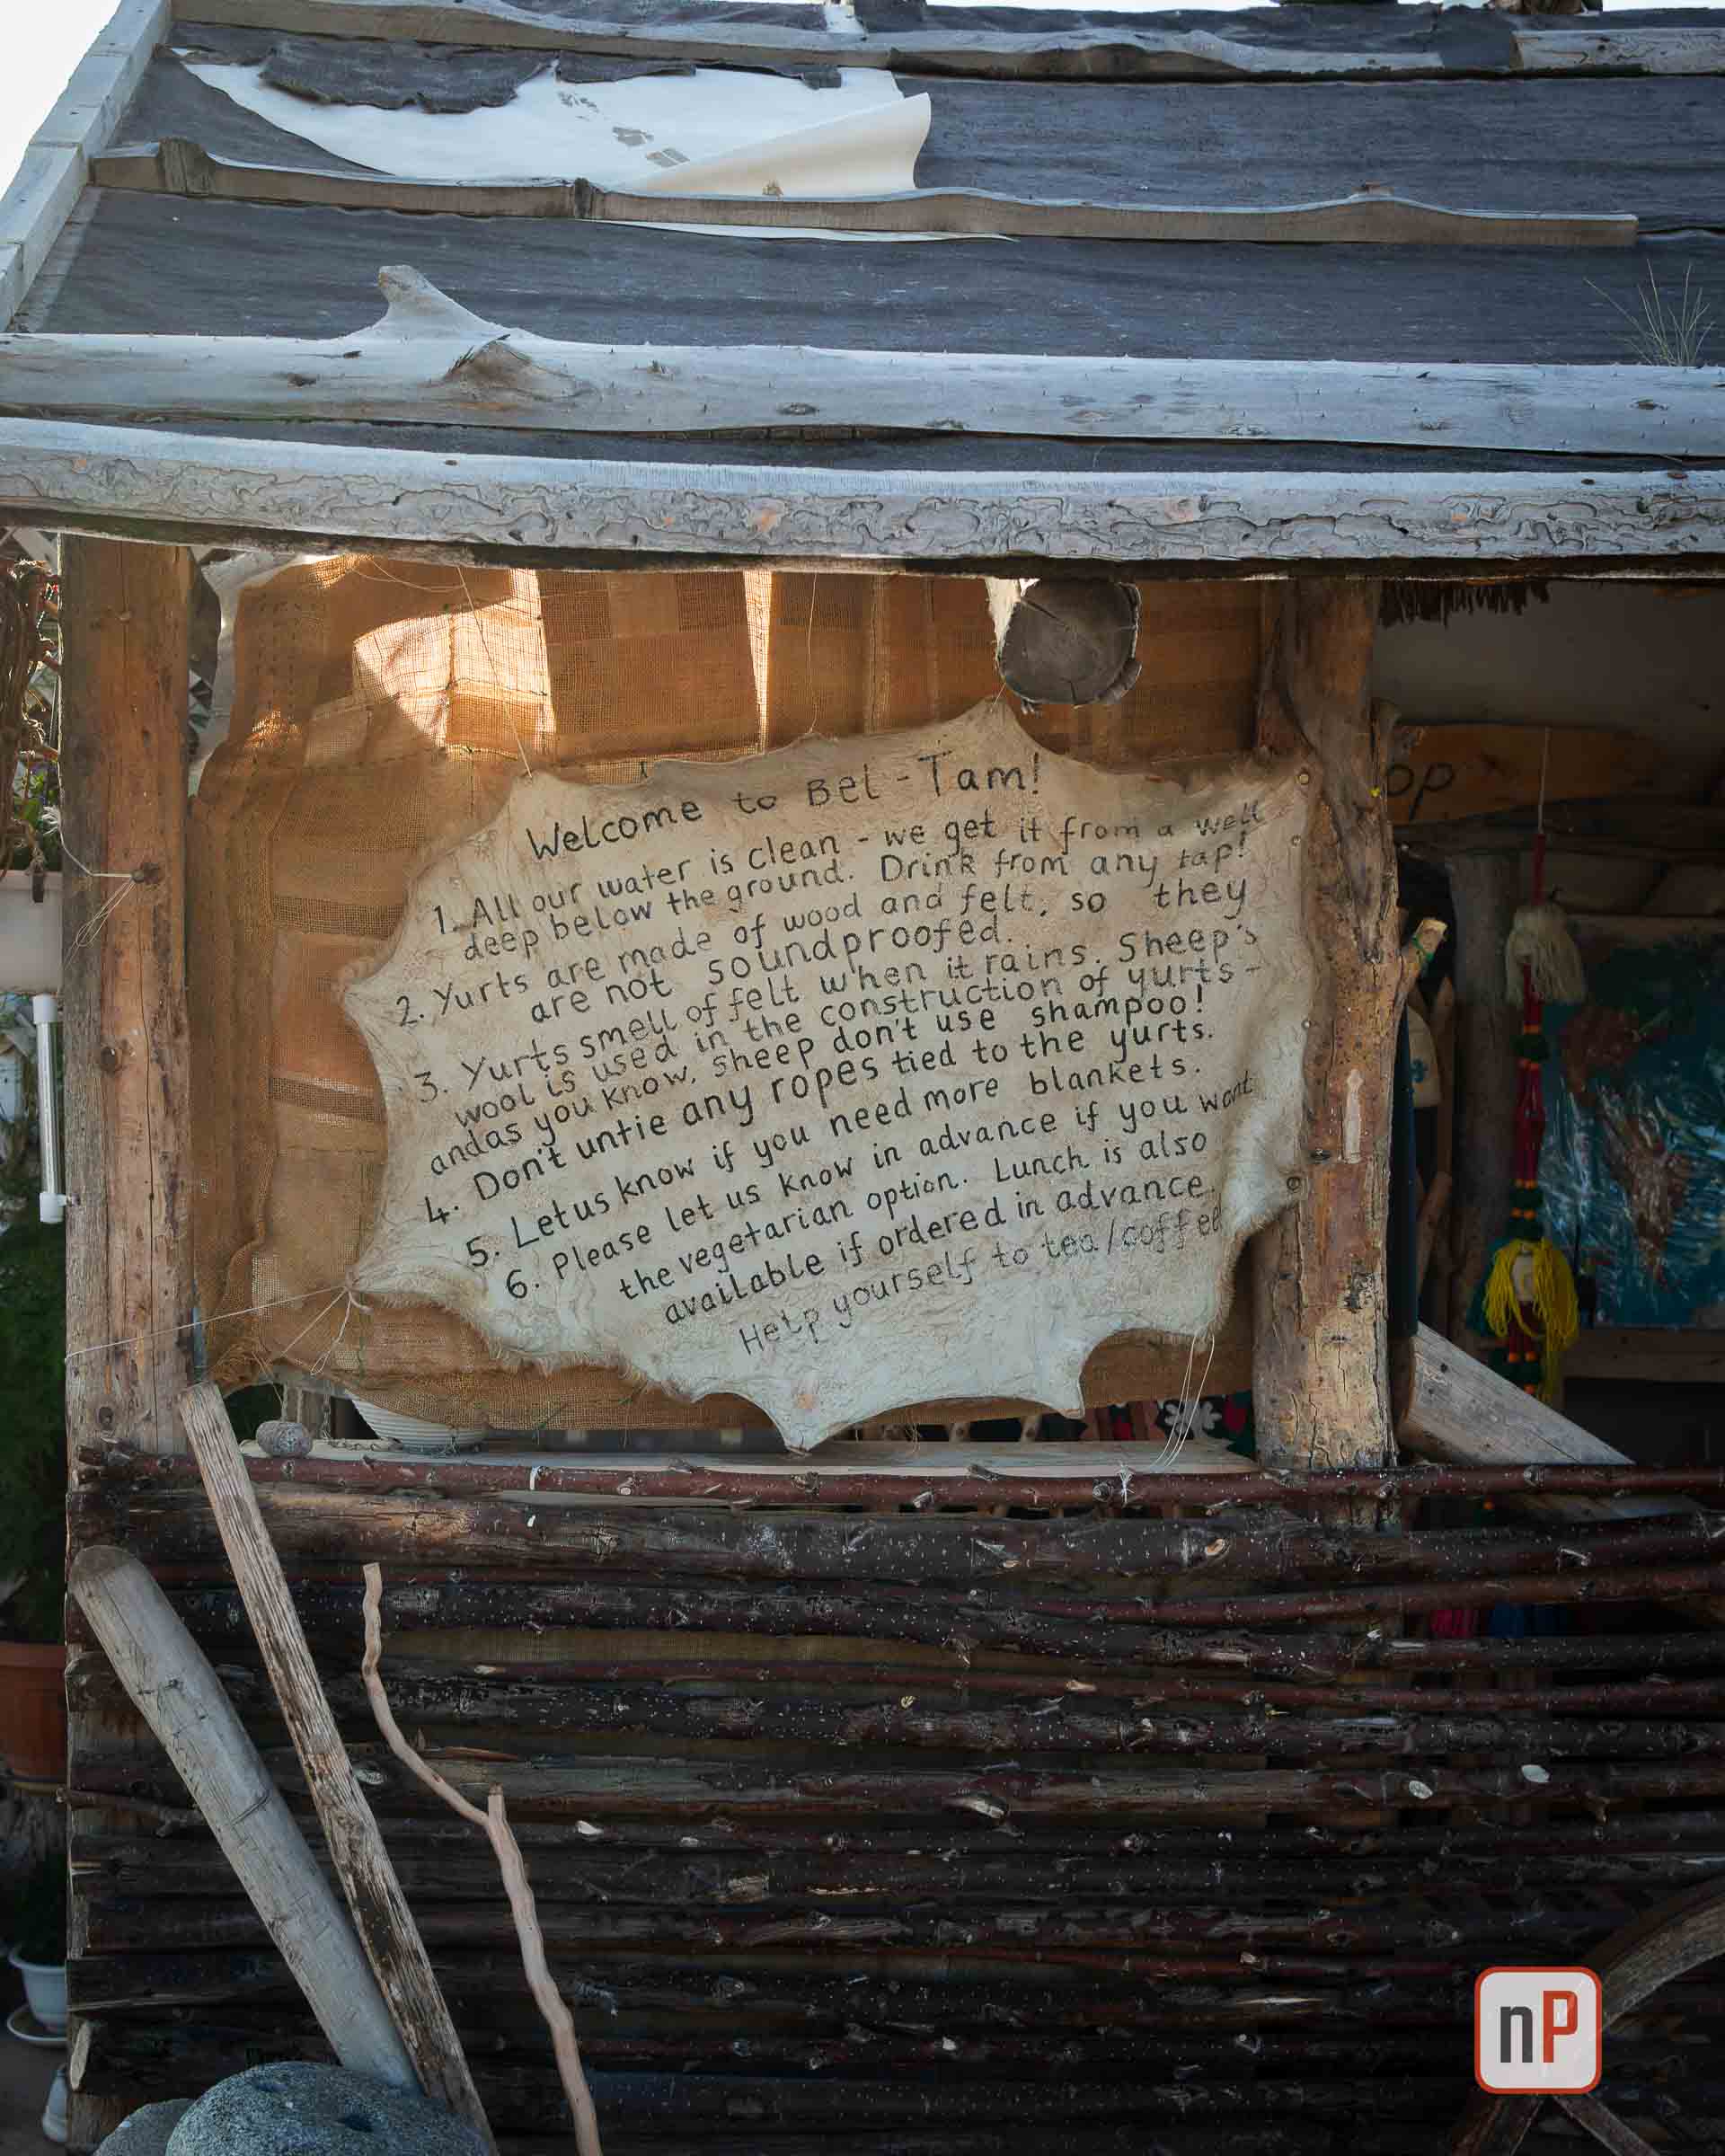 Welcome to Bel-Tam!
1. All our water is clean - we get it from a well
deep below the ground. Drink from any tap!
2. Yurts are made of wood and felt, so they
are not soundproofed.
3. Yurts smell of felt when it rains. Sheep's
wool is used in the construction of yurts -
andas you know, sheep don't use shampoo!
4. Don't untie any ropes tied to the yurts.
5. Let us know if you need more blankets.
6. Please let us know in advance if you want
the vegetarian option. Lunch is also
available if ordered in advance.
Help yourself to tea/coffee
op
nP